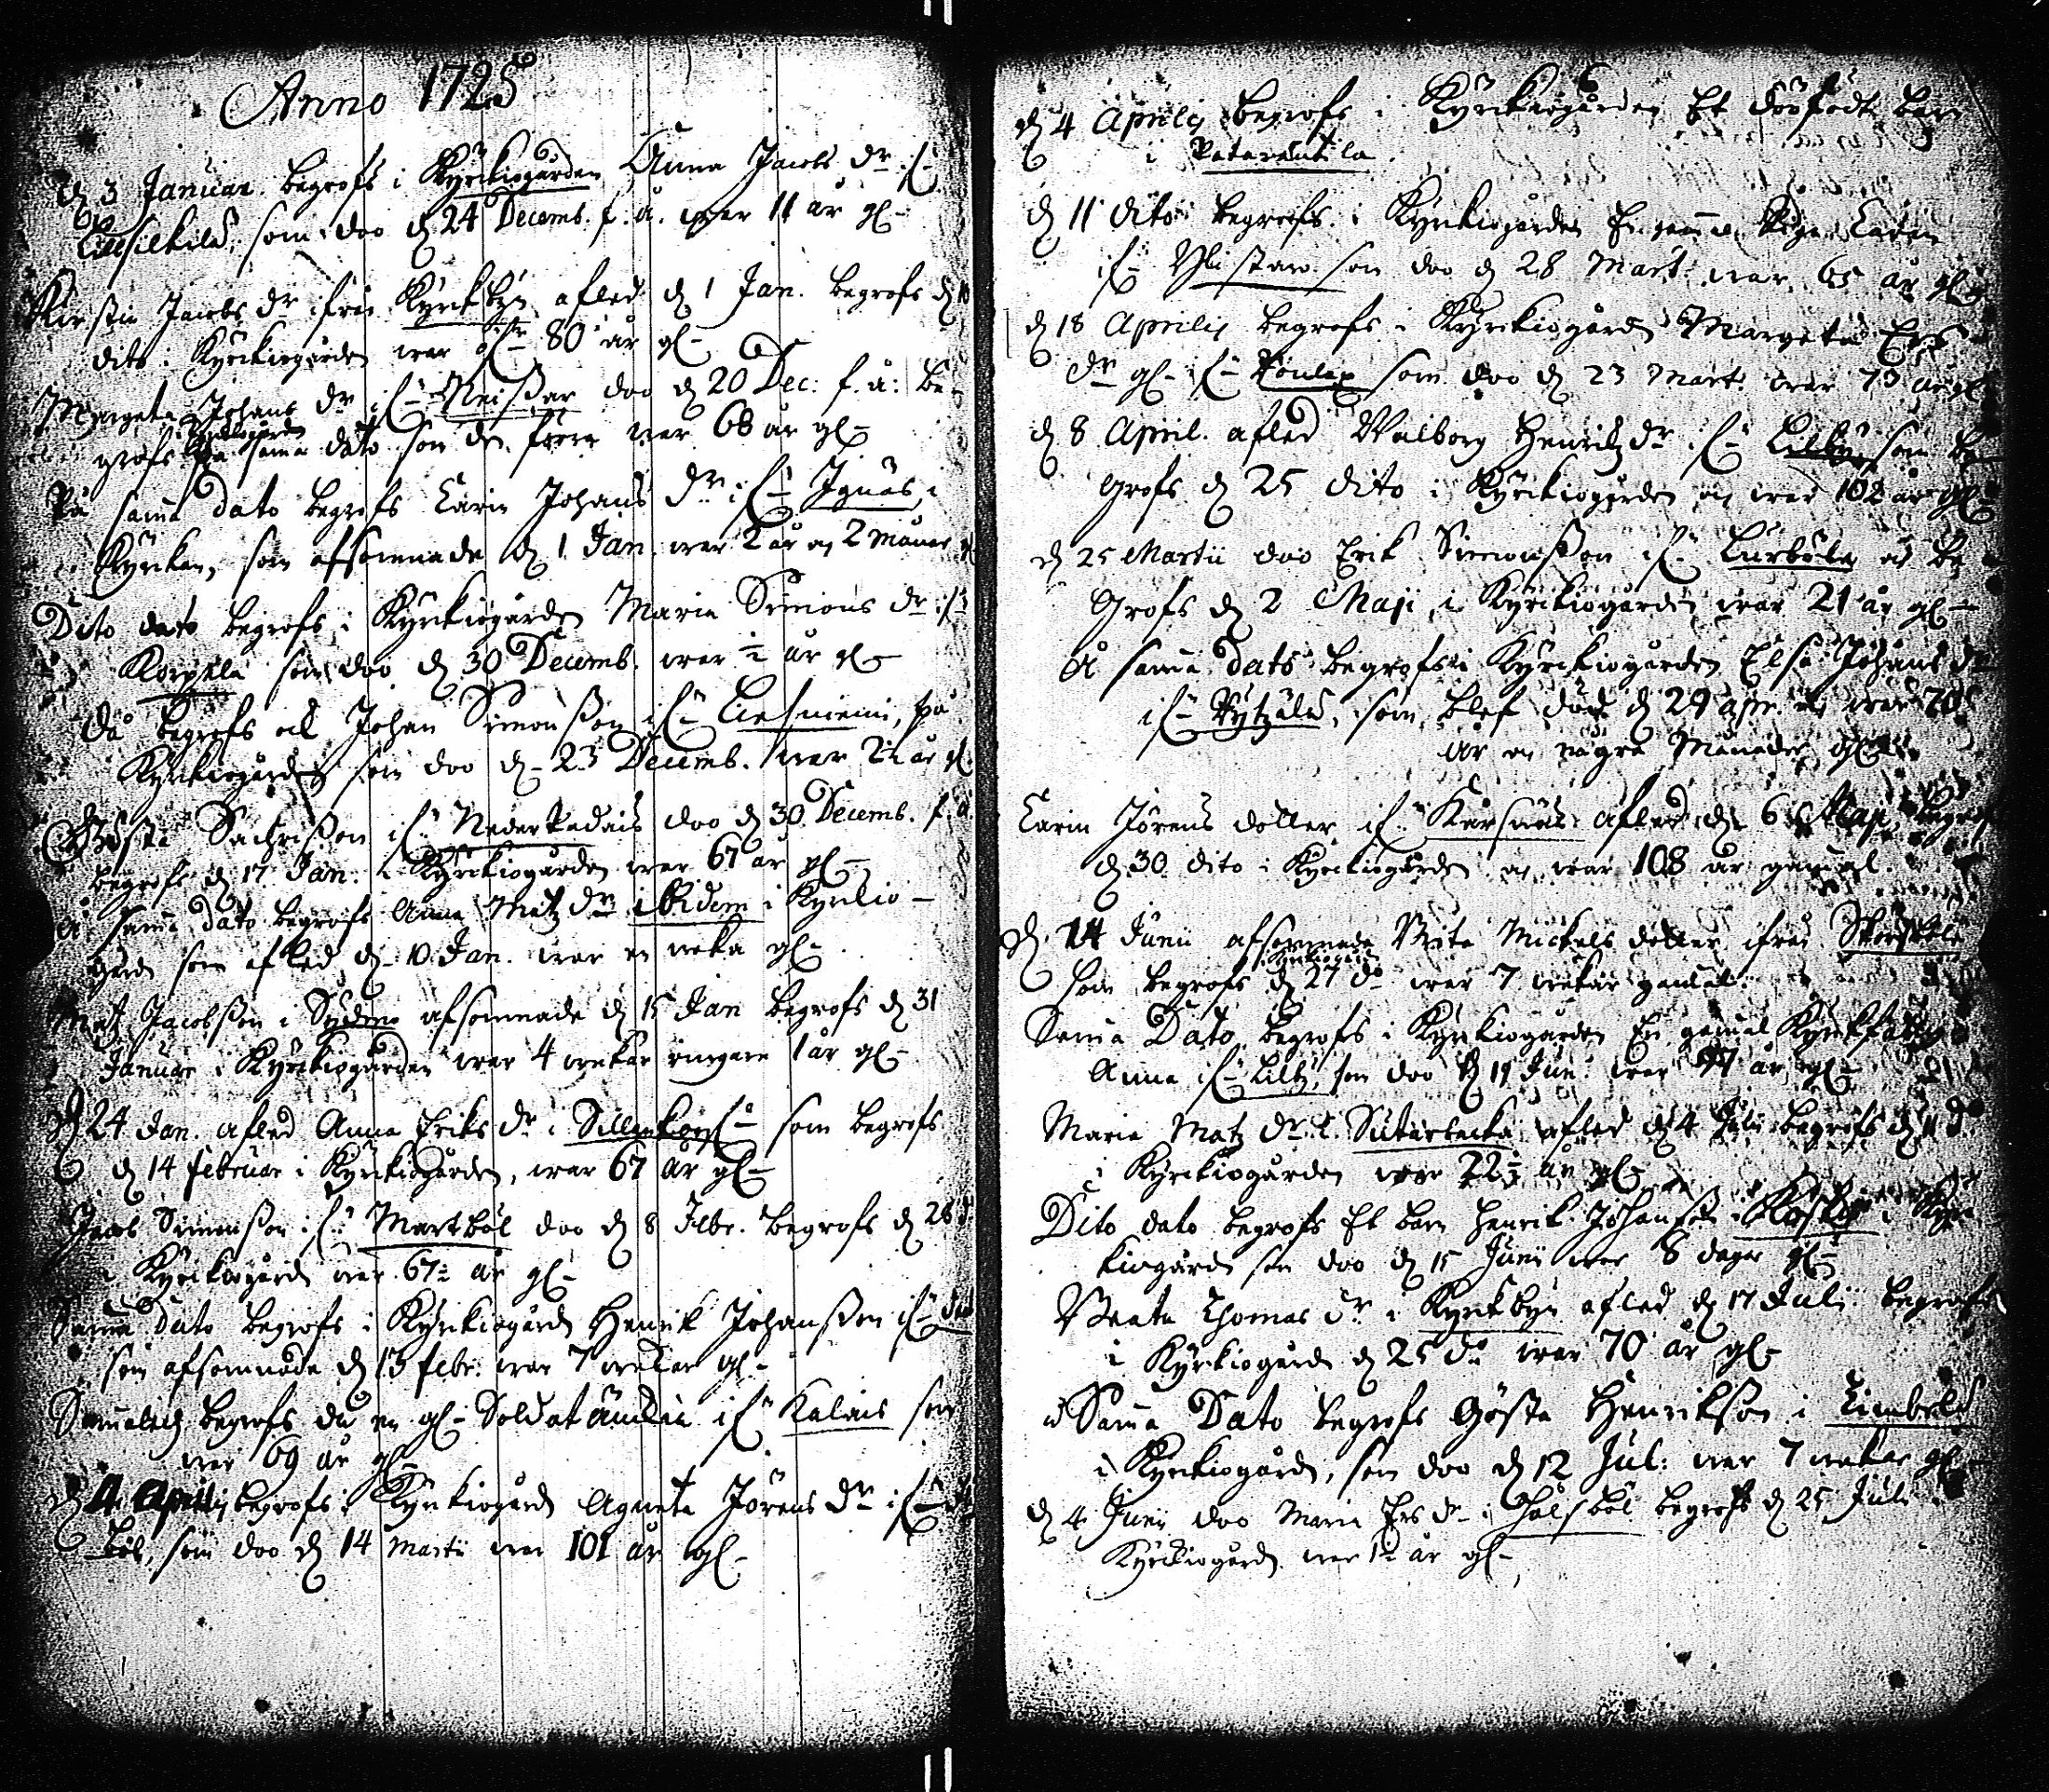 Anno 1725
d 3 Januar. begrofs i Kyrkiogården Anna Jacobs dr if:n
som doo d 24 Decemb. f. å. war 11 år gl-
Kirstin Jacobs dr ifrån Kyrkbyn afled d 1 Jan. begrofs d
dito i Kyrkiogården war 80 år gl-
Margeta Johans dr if:n doo d 20 Dec: f. å: be-
i Kyrkiogården
grofs på sama dato som den förra war 68 år gl-
På sama dato begrofs Carin Johans dr if:n Ignäs i
Kyrkan, som afsomnade d 1 Jan. war 2 år og 2 månar
Dito dato begrofs i Kyrkiogården Maria Simons dr if:n
Korpela som doo d 30 Decemb. war ½ år gl-
Då begrofs ock Johan Simonsson if:n på
Kyrkiogården som doo d 23 Decemb. war år gl-
Gösta if:n Nederkadais doo d 30 Decemb. f. å.
begrofs d 17 Jan: i Kyrkiogården war 67 år gl-
å sama dato begrofs Anna Matz dr ibidem i Kyrkio-
gård som afled d 10 Jan. war en weka gl-
Matz Jacobsson i afsomnade d 15 Jan begrofs d 31
Januar i Kyrkiogården war 4 wekar 1 år gl-
d 24 Jan. afled Anna Eriks dr i som begrofs
d 14 februar i Kyrkiogården, war 67 år gl-
Jacob Simonsson if:n Martböl doo d 8 Febr. begrofs d 28 d:
i Kyrkiogård war 67 år gl-
Sama dato begrofs i Kyrkiogård Henrik Johansson if:n
som afsomnade d 13 febr: war 7 wekar gl-
begrofs då en gl- Soldat änkia if:n Kalais som
war 69 år gl-
d 4 Aprilis begrofs i Kyrkiogård Agneta Jörens dr if:n
böl, som doo d 14 Martii war 101 år gl-
d 4 Aprilis begrofs i Kyrkiogården Et döfödt barn
i
d 11 dito begrofs i Kyrkiogården En gamal Piga Carin
if:n som doo d 28 Mart. war 65 år gl-
d 18 Aprilis begrofs i Kyrkiogård Margeta Ers
dr gl- if:n som doo d 23 Mart. war 73 år gl-
d 8 April. afled Walborg Henriks dr if:n Lillby som be-
grofs d 25 dito i Kyrkiogården og war 102 år gl-
d 25 Martii doo Erik Simonsson if:n Lurböle og be-
grofs d 2 Maji i Kyrkiogården war 21 år gl-
å sama dato begrofs i Kyrkiogården Elsa Johans dr
if:n som blef död d 29 apr. og war 70
år og några Månader gl-
Carin Jörens dotter if:n Kärsnäs afled d 6 Maji begrofs
d 30 dito i Kyrkiogården og war 108 år gamal.
d 14 Junii afsomnade Brita Mickels dotter ifrån
i Kyrkiogård
som begrofs d 27 do war 7 wekar gamal.
Sama Dato begrofs i Kyrkiogården En gamal Kyrkfattig
Anna if:n Lillby, som doo d 19 Jun: war 77 år gl-
Maria Matz dr i Sutarbacka afled d 4 Julii begrofs d 11 do
i Kyrkiogården war 22½ år gl-
Dito dato begrofs Et barn Henrik Johansson i Koskis i Kyr-
kiogård som doo d 15 Junii war 8 dagar gl-
Beata Thomas dr i Kyrkbyn afled d 17 Julii begrofs
i Kyrkiogård d 25 do war 70 år gl-
å Sama Dato begrofs Gösta Henriksson i
i Kyrkiogård, som doo d 12 Jul: war 7 wekar gl-
d 4 Junii doo Maria Ers dr i begrofs d 25 Julii
Kyrkiogård war 1½ år gl-